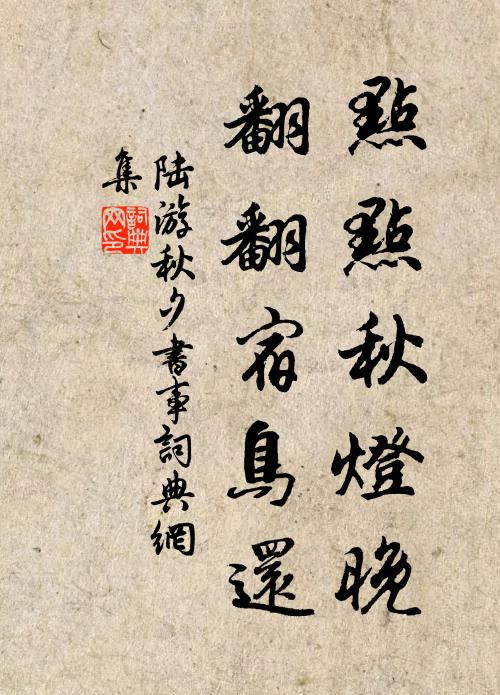 點點秋燈晚
翻翻宿鳥還
陆游秋夕書事詞典網
集
詞典
网印